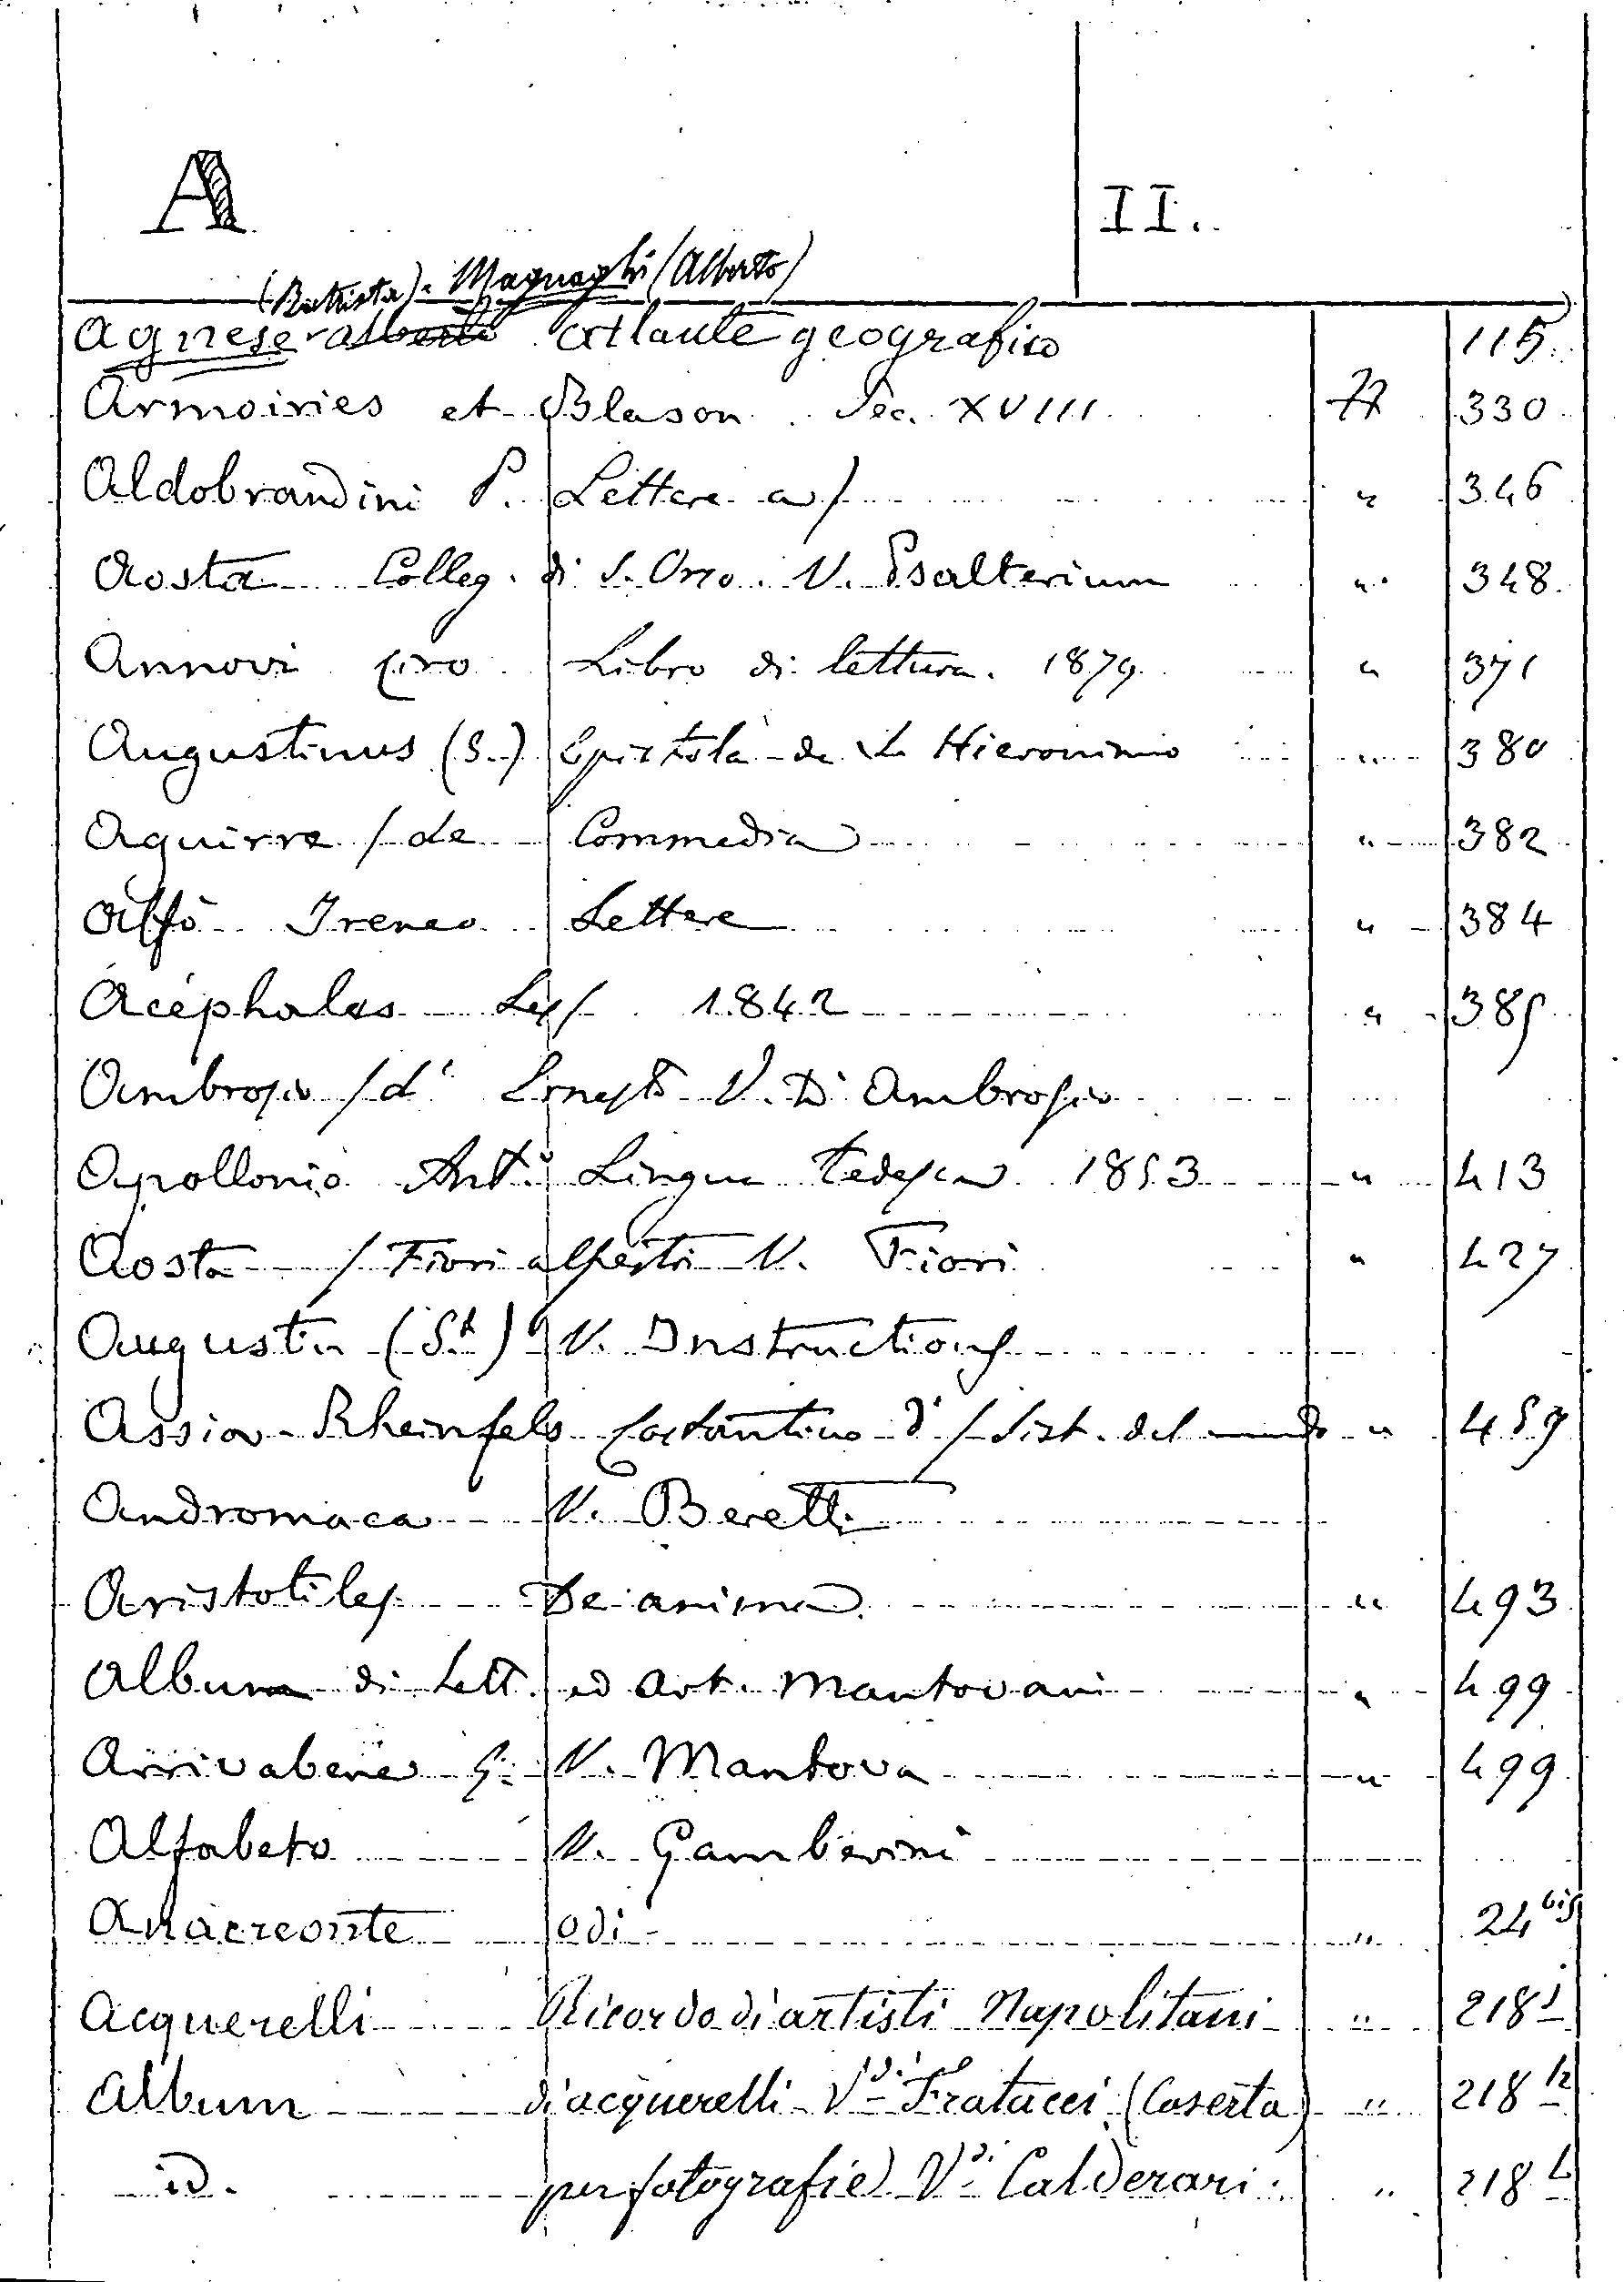 A II.
(Battista). Magnaghi (Alberto)
Agnese Alberto Atlante geografico 115
Armoiries et Blason. Sec. XVIII 330
Aldobrandini P. Lettere a/ " 346
Aosta Colleg. di S. Orso. V. Psalterium " 348
Annovi Ciro Libro di lettura. 1879 " 371
Augustinus (S.) Epistola de S. Hieronimo " 380
Aguirre / de Commedia " 382
Affò Ireneo Lettere " 384
Acéphales 1842 " 385
Ambrosio / d' Ernesto V. D'Ambrosio
Apollonio Ant.º Lingua tedesca 1853 " 413
Aosta / Fiori alpestri V. Fiori " 427
Augustin (St) V. Instructions
Assia-Rheinfels Costantino d' / Sist. del mondo " 459
Andromaca V. Beretti
Aristotiles De anima " 493
Album di Lett. ed Art. Mantovani " 499
Arrivabene G. V. Mantova " 499
Alfabeto V. Gamberini
Anacreonte odi " 24 bis
Acquerelli Ricordo di artisti Napolitani " 218 j
Album di acquerelli Vdi Fratacci (Caserta) " 218 k
id. per fotografie Vdi Calderari. " 218 L